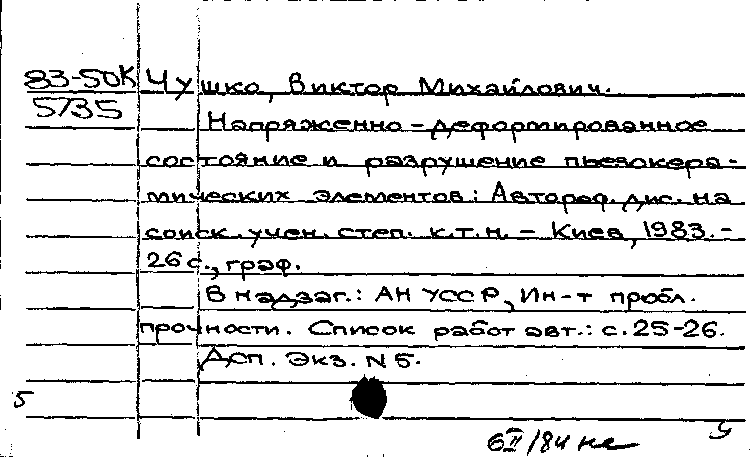 83-50К Чушко, Виктор Михайлович.
5735
Напряженно-деформированное
состояние и разрушение пьезокера-
мических элементов: Автореф. дис. на
соиск. учен. степ. к.т.н. - Киев, 1983. -
26 с., граф.
В надзаг.: АН УССР, Ин-т пробл.
прочности. Список работ авт.: с. 25-26.
Дсп. Экз. N 5.
5
6II/84